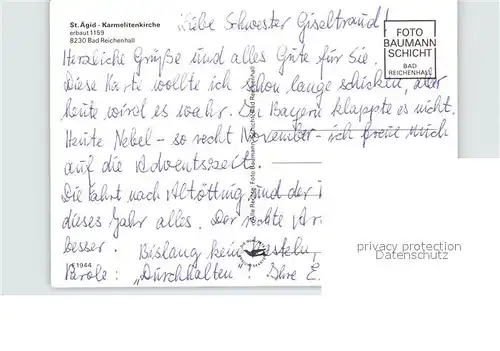 St. Ägid - Karmelitenkirche
erbaut 1159
8230 Bad Reichenhall
FOTO
BAUMANN
SCHICHT
BAD
REICHENHALL
Liebe Schwester Giseltrand!
Herzliche Grüße und alles Gute für Sie.
Diese Karte wollte ich schon lange schicken, aber
heute wird es wahr. In Bayern klappte es nicht.
Heute Nebel - so recht November - ich freue mich
auf die Adventszeit.
Die Fahrt nach Altötting und der
dieses Jahr alles. Der rechte Ar
besser. Bislang kein
Parole: "Durchhalten"! Ihre E.
1944
privacy protection
Datenschutz